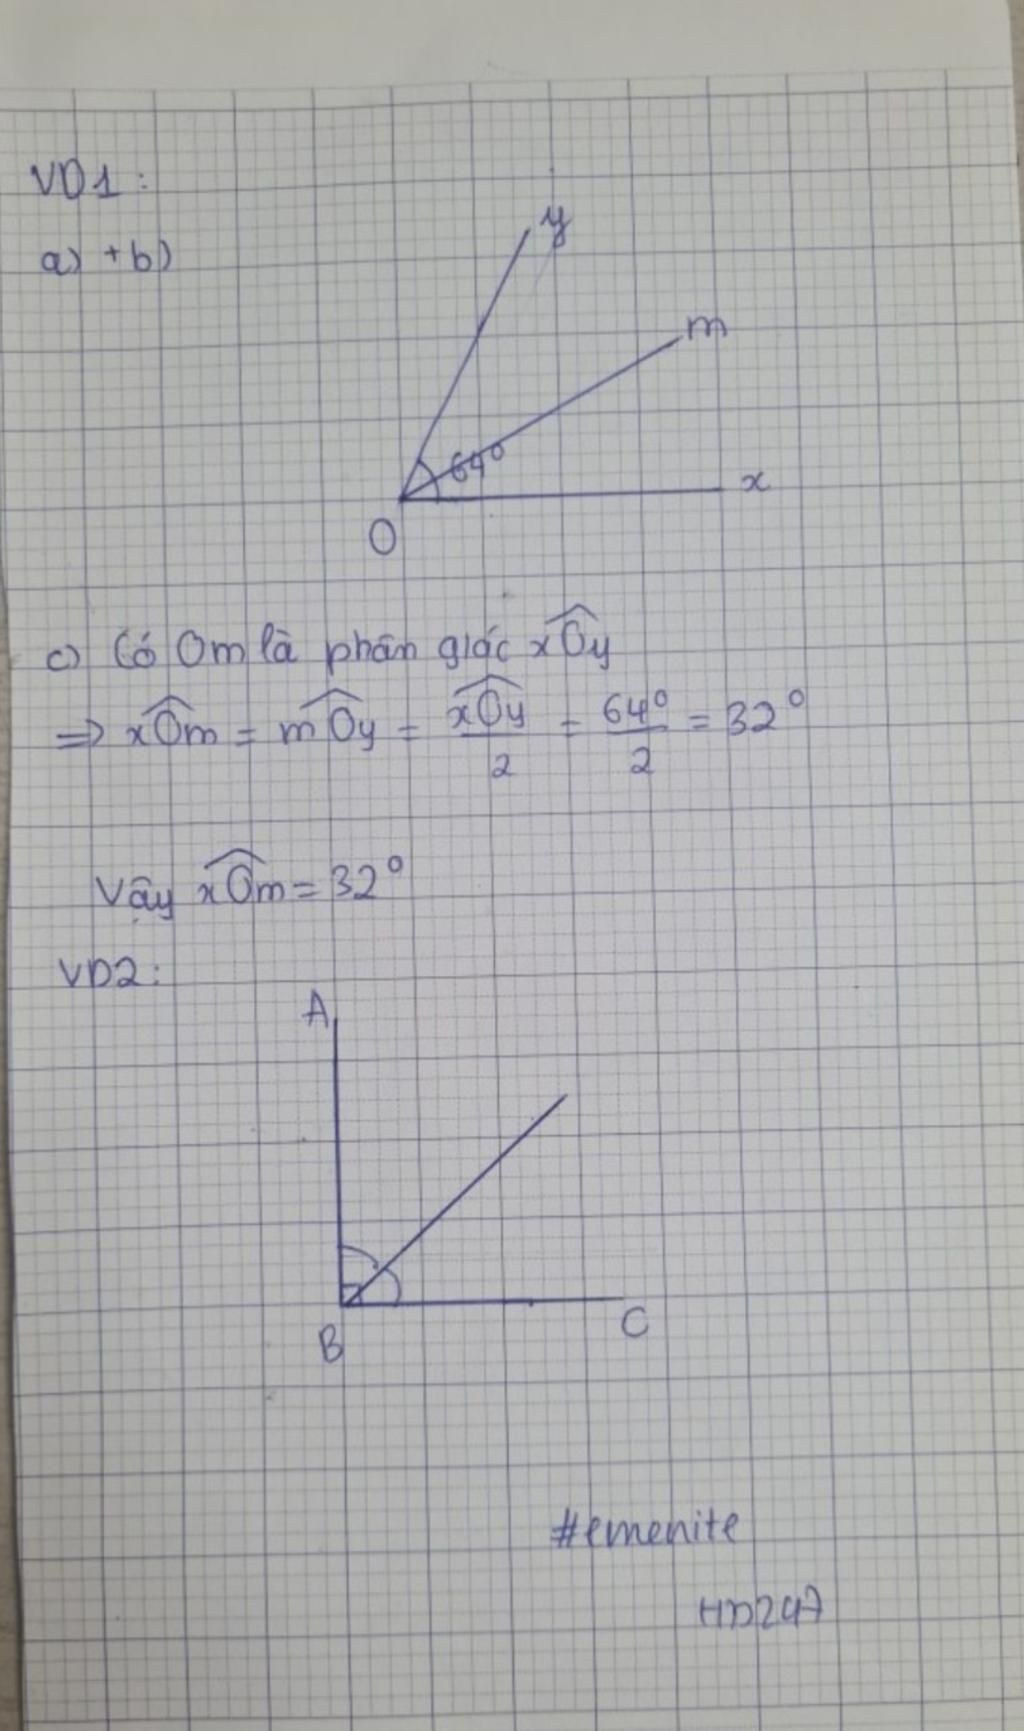 VD1:
a) + b)
y
m
64°
x
O
c) Có Om là phân giác xÔy
=> xÔm = mÔy = xÔy/2 = 64°/2 = 32°
Vậy xÔm = 32°
VD2:
A
B
C
#emenite
HD247